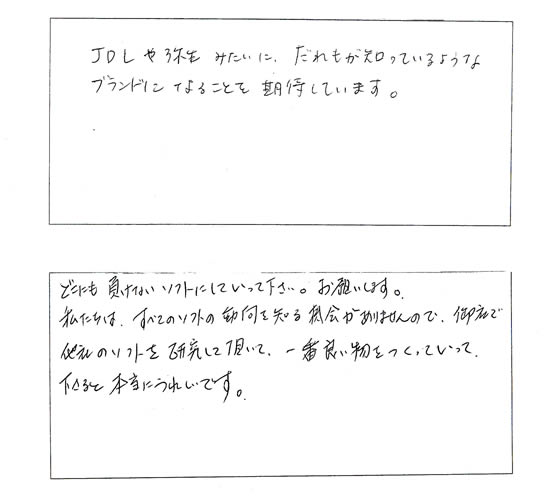 JDLや弥生みたいに、だれもが知っているような
ブランドになることを期待しています。
どこにも負けないソフトにしていって下さい。お願いします。
私たちは、すべてのソフトの動向を知る機会がありませんので、御社で
他社のソフトを研究して頂いて、一番良い物をつくっていって
下さると本当にうれしいです。